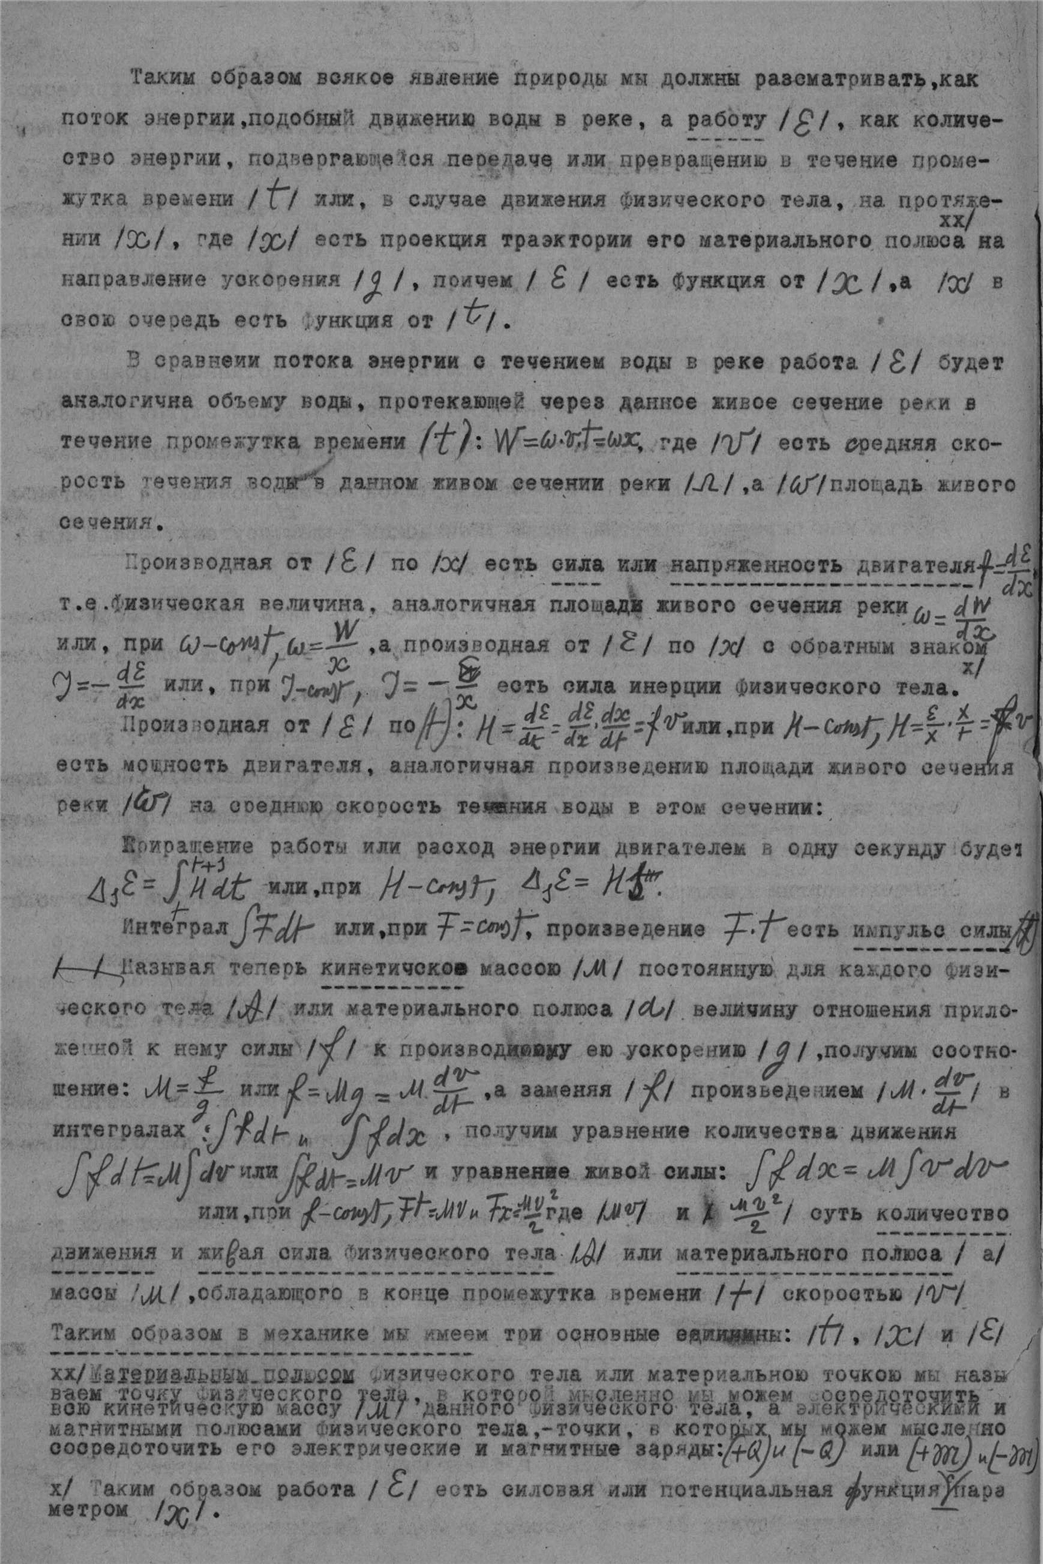 Таким образом всякое явление природы мы должны разсматривать,как
поток энергии,подобный движению воды в реке, а работу /ℰ/, как количе-
ство энергии, подвергающейся передаче или превращению в течение проме-
жутка времени /t/ или, в случае движения физического тела, на протяже-
нии /x/, где /x/ есть проекция траэктории его материального полюса xx/ на
направление ускорения /g/, причем / ℰ / есть функция от /x/,а /x/ в
свою очередь есть функция от /t/.
В сравнеии потока энергии с течением воды в реке работа /ℰ/ будет
аналогична объему воды, протекающей через данное живое сечение реки в
течение промежутка времени /t/: W=ω·v.t=ωx, где /v/ есть средняя ско-
рость течения воды в данном живом сечении реки /Ω/,а /ω/площадь живого
сечения.
Производная от /ℰ/ по /x/ есть сила или напряженность двигателя f=dℰ/dx
т.е.физическая величина, аналогичная площади живого сечения реки ω=dW/dx
или, при ω-const, ω=W/x ,а производная от /ℰ/ по /x/ с обратным знаком
J=-dℰ/dx или, при J-const, J= -ℰ/x есть сила инерции физического тела. x/
Производная от /ℰ/ по /t/: H=dℰ/dt=dℰ/dx·dx/dt=fv или,при H-const, H=ℰ/x·x/t=fv
есть мощность двигателя, аналогичная произведению площади живого сечения
реки /ω/ на среднюю скорость течения воды в этом сечении:
Приращение работы или расход энергии двигателем в одну секунду будет
Δ₁ℰ=∫ₜᵗ⁺¹ H dt или,при H-const, Δ₁ℰ= H
Интеграл ∫Fdt или,при F=const, произведение F.t есть импульс силы
Называя теперь кинетическое массою /M/ постоянную для каждого физи-
ческого тела /A/ или материального полюса /a/ величину отношения прило-
женной к нему силы /f/ к производимому ею ускорению /g/,получим соотно-
шение: M=f/g или f=Mg=M dv/dt ,а заменяя /f/ произведением /M·dv/dt/ в
интегралах :∫fdt и ∫fdx , получим уравнение количества движения
∫fdt=M∫dv или ∫fdt=Mv и уравнение живой силы: ∫f dx=M∫v dv
или,при f-const, Ft=Mv и Fx=Mv²/2 где /Mv/ и / Mv²/2 / суть количество
движения и живая сила физического тела /A/ или материального полюса / а/
массы /M/,обладающого в конце промежутка времени /t/ скоростью /v/
Таким образом в механике мы имеем три основные единины: /t/, /x/ и /ℰ/
xx/Материальным полюсом физического тела или материальною точкою мы назы
ваем точку физического тела, в которой мысленно мы можем сосредоточить
всю кинетическую массу /M/ данного физического тела, а электрическими и
магнитными полюсами физического тела,-точки, в которых мы можем мысленно
сосредоточить его электрические и магнитные заряды:(+Q)и(-Q) или (+m)и(-m)
x/ Таким образом работа /ℰ/ есть силовая или потенциальная функция пара
метром /x/.